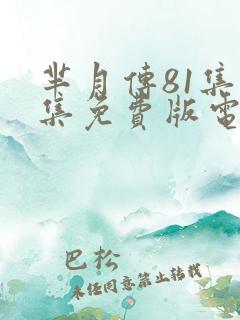 芈月傳81集
集免費版電
巴松
未经同意禁止转载